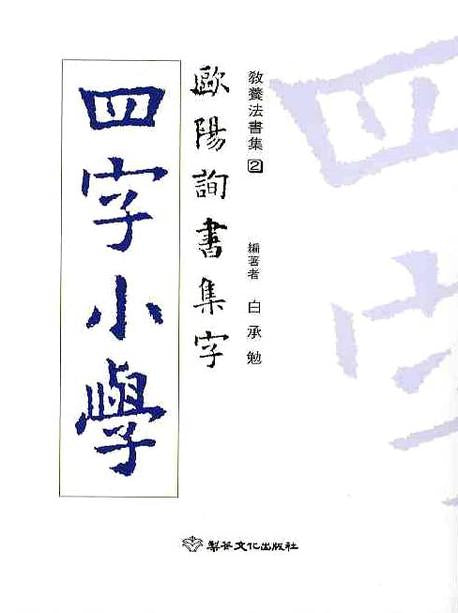 敎養法書集 2
編著者 白承勉
歐陽詢書集字
四字小學
梨花文化出版社